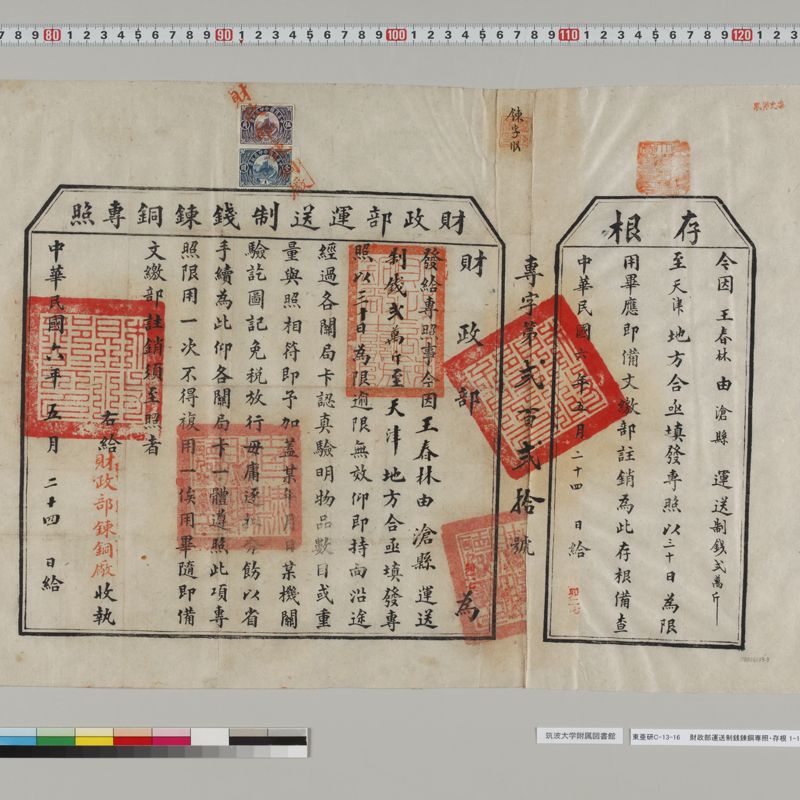 存根
今因王春林由滄縣運送制錢弍萬斤
至天津地方合亟填發專照以三十日為限
用畢應即備文繳部註銷為此存根備查
中華民國六年五月二十四日給
專字第弍百弍拾號
財政部運送制錢鍊銅專照
財政部為
發給專照事今因王春林由滄縣運送
制錢弍萬斤至天津地方合亟填發專
照以三十日為限逾限無效仰即持向沿途
經過各關局卡認真驗明物品數目或重
量與照相符即予加蓋某年月日某機關
驗訖圖記免稅放行毋庸逐
餝以省
手續為此仰各關局卡一體遵照此項專
照限用一次不得複用一俟用畢隨即備
文繳部註銷須至照者
右給財政部鍊銅廠收執
中華民國六年五月二十四日給
筑波大学附属図書館
東亜研C-13-16 財政部運送制銭錬銅専照・存根 1-1